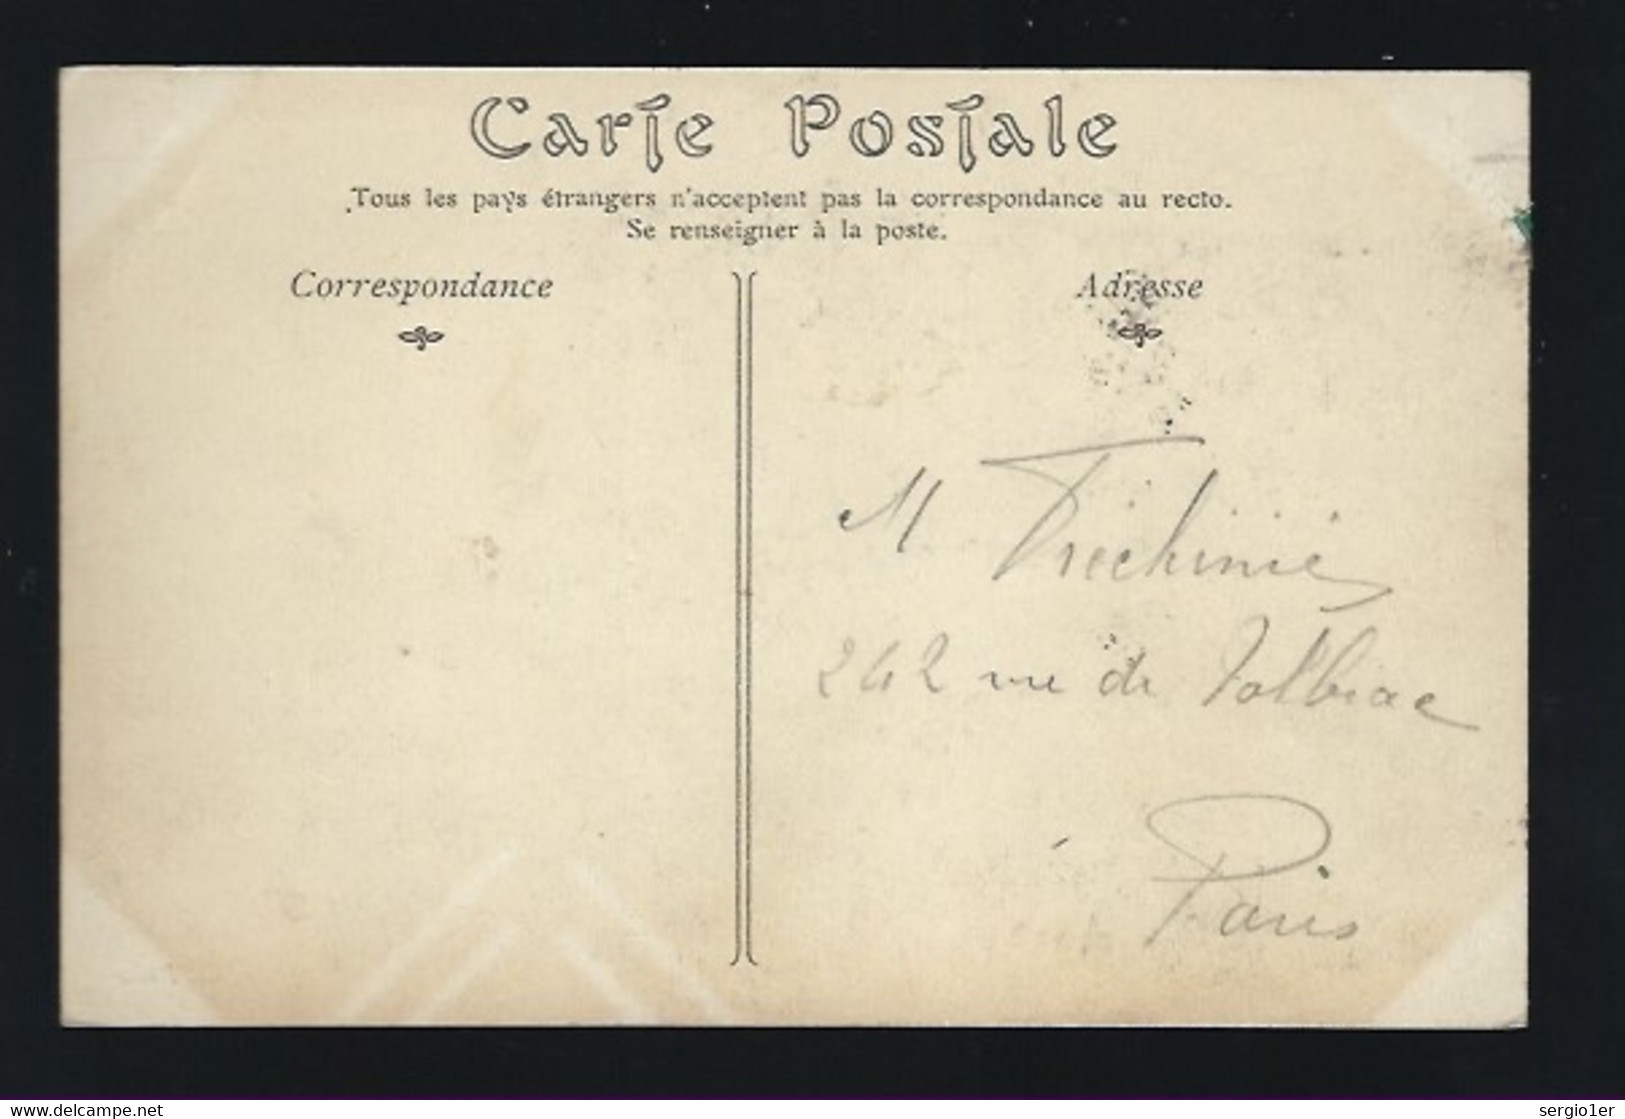 Carte Postale
Tous les pays étrangers n'acceptent pas la correspondance au recto.
Se renseigner à la poste.
Correspondance
Adresse
M
242 rue de Tolbiac
Paris
www.delcampe.net
sergio1er